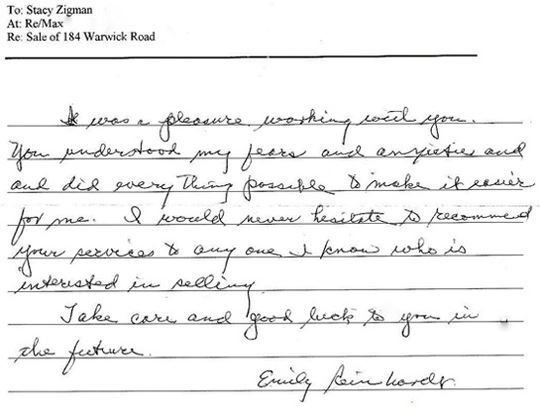 To: Stacy Zigman
At: Re/Max
Re: Sale of 184 Warwick Road
It was a pleasure working with you.
You understood my fears and anxieties and
and did everything possible to make it easier
for me. I would never hesitate to recommend
your services to any one I know who is
interested in selling
Take care and good luck to you in
the future.
Emily Reinhardt.